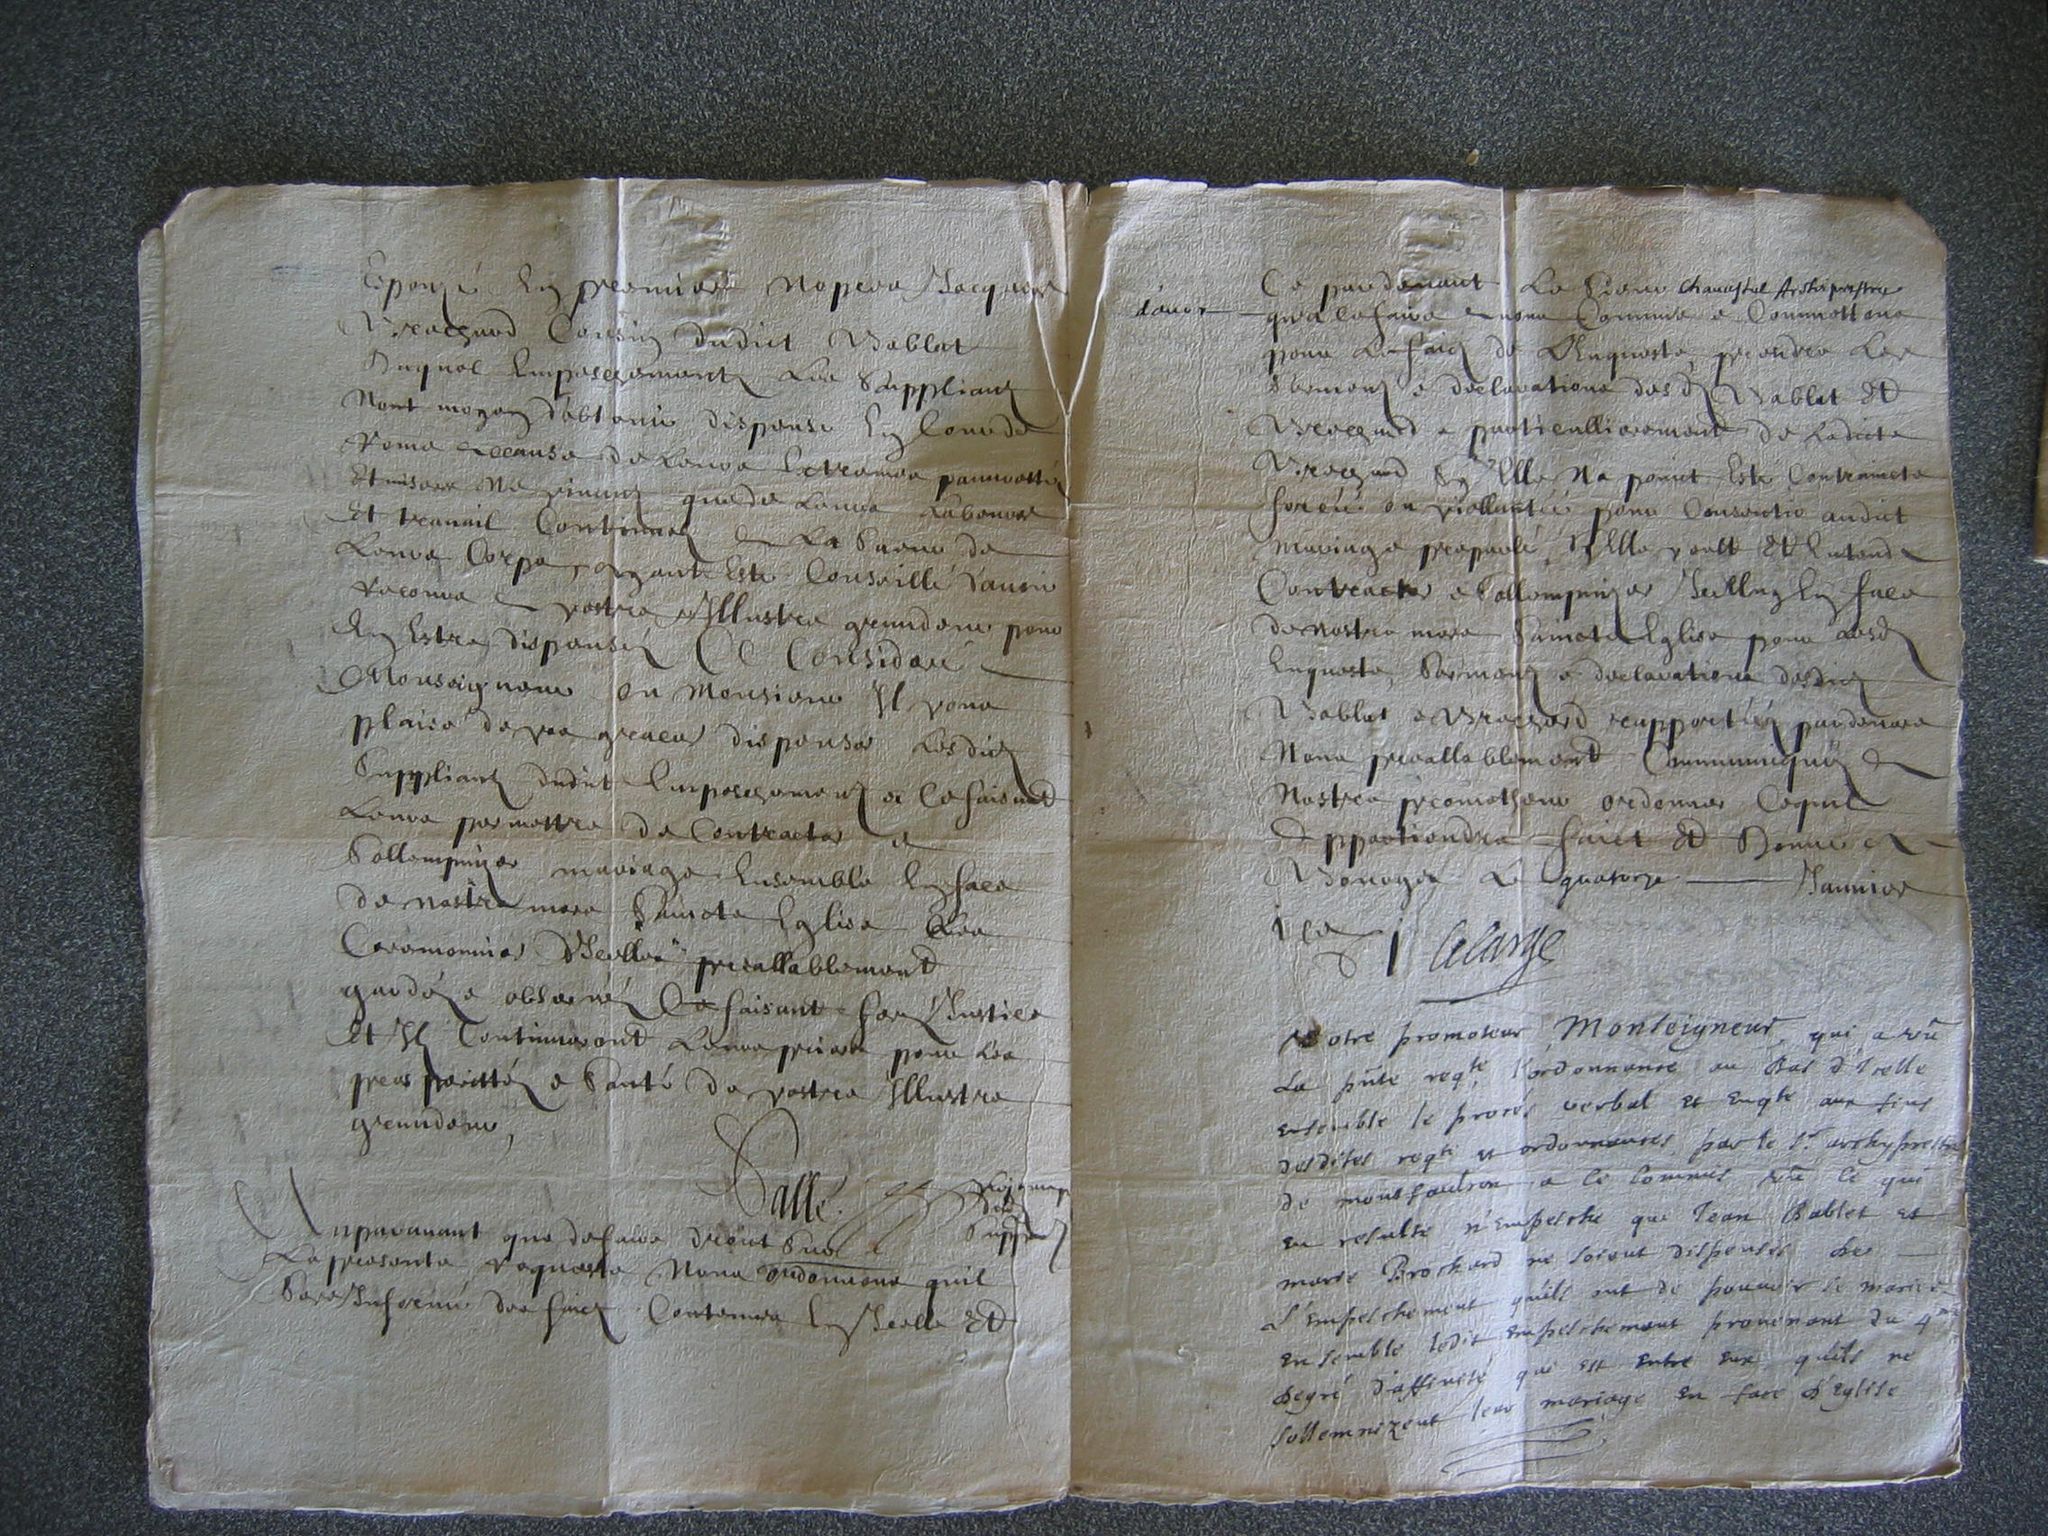 Espouzé En premieres Nopces Jacques
Brochard Cousin dudict Bablet
Duquel Empeschement Les Supplians
Nont moyen dobtenir dispense En Cour de
Rome a cause de Leurs Extremes pauvretté
Et misere Ne vivans que de Leurs Labeurs
Et travail Continuel & La Sueur de
Leurs Corps, ayant Esté Conseillé d'avoir
recours a vostre Illustre grandeur pour
En Estre dispenséz Ce Consideré
Monseigneur ou Monsieur Il vous
plaise de vos graces dispenser Lesdictz
Supplians dudict Empeschement & Ce faisant
Leurs permettre de Contracter &
Sollempnizer mariage Ensemble En face
de nostre mere Saincte Eglise Les
Ceremonies d'Icelles preallablement
gardéz & observéz Ce faisant ferez Justice
Et Ilz Continueront Leurs prieres pour Les
prosperittéz & Santé de vostre Illustre
grandeur,
Sallé.
Auparavant que de faire droict Sur
La presente requeste Nous ordonnons quil
Sera Informé des faictz Contenus En Icelle Et
Ce pardevant Le Sieur Archiprestre
qua Ce faire avons Commis & Commettons
pour Le faict de L'Enqueste, prendre Les
Sermens & declarations desdz Bablet Et
Brochard & particullierement de Ladicte
Brochard Sy Elle Na point Esté Contraincte
forcée ou viollantée pour Consentir audict
mariage proparlé, Sy Elle veult Et Entend
Contracter & Sollempnizer Icelluy En face
de nostre mere Saincte Eglise pour Lesd
Enqueste, Sermens & declarations desdictz
Bablet & Brochard rapportéez pardevers
Nous preallablement Communiquéz a
Nostre promotheur ordonner Ce quil
Appartiendra faict Et Donné a
Bourges Le quatorze Janvier
Lelarge
Notre promoteur, Monseigneur, qui a vû
La pnte reqte, l'ordonnance au Bas d'Icelle
ensemble le procés verbal et enqte aux fins
desdites reqte et ordonnances par le Sr archyprestre
de montfaulcon a ce commis vû ce qui
en resulte n'empesche que Jean Bablet et
marie Brochard ne soient dispensés de
L'empeschement qu'ils ont de pouvoir se marier
ensemble ledit empeschement provenant du 4me
degré d'affinité qui est entre eux, qu'ils ne
sollemnizent leur mariage en face d'Eglise